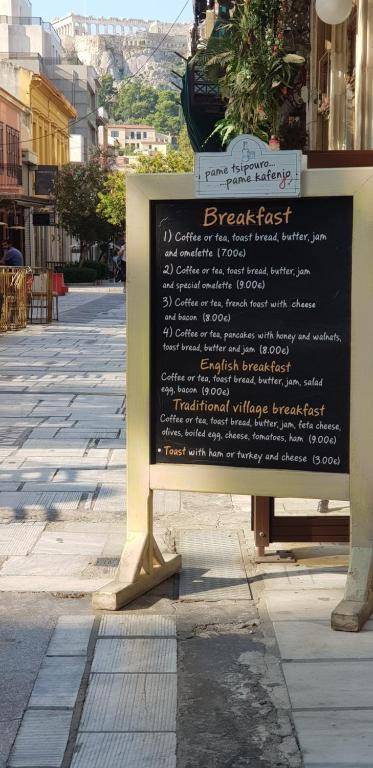 pame tsipouro...
...pame kafenio
Breakfast
1) Coffee or tea, toast bread, butter, jam
and omelette (7.00€)
2) Coffee or tea, toast bread, butter, jam
and special omelette (9.00€)
3) Coffee or tea, french toast with cheese
and bacon (8.00€)
4) Coffee or tea, pancakes with honey and walnuts,
toast bread, butter and jam (8.00€)
English breakfast
Coffee or tea, toast bread, butter, jam, salad
egg, bacon (9.00€)
Traditional village breakfast
Coffee or tea, toast bread, butter, jam, feta cheese,
olives, boiled egg, cheese, tomatoes, ham (9.00€)
• Toast with ham or turkey and cheese (3.00€)